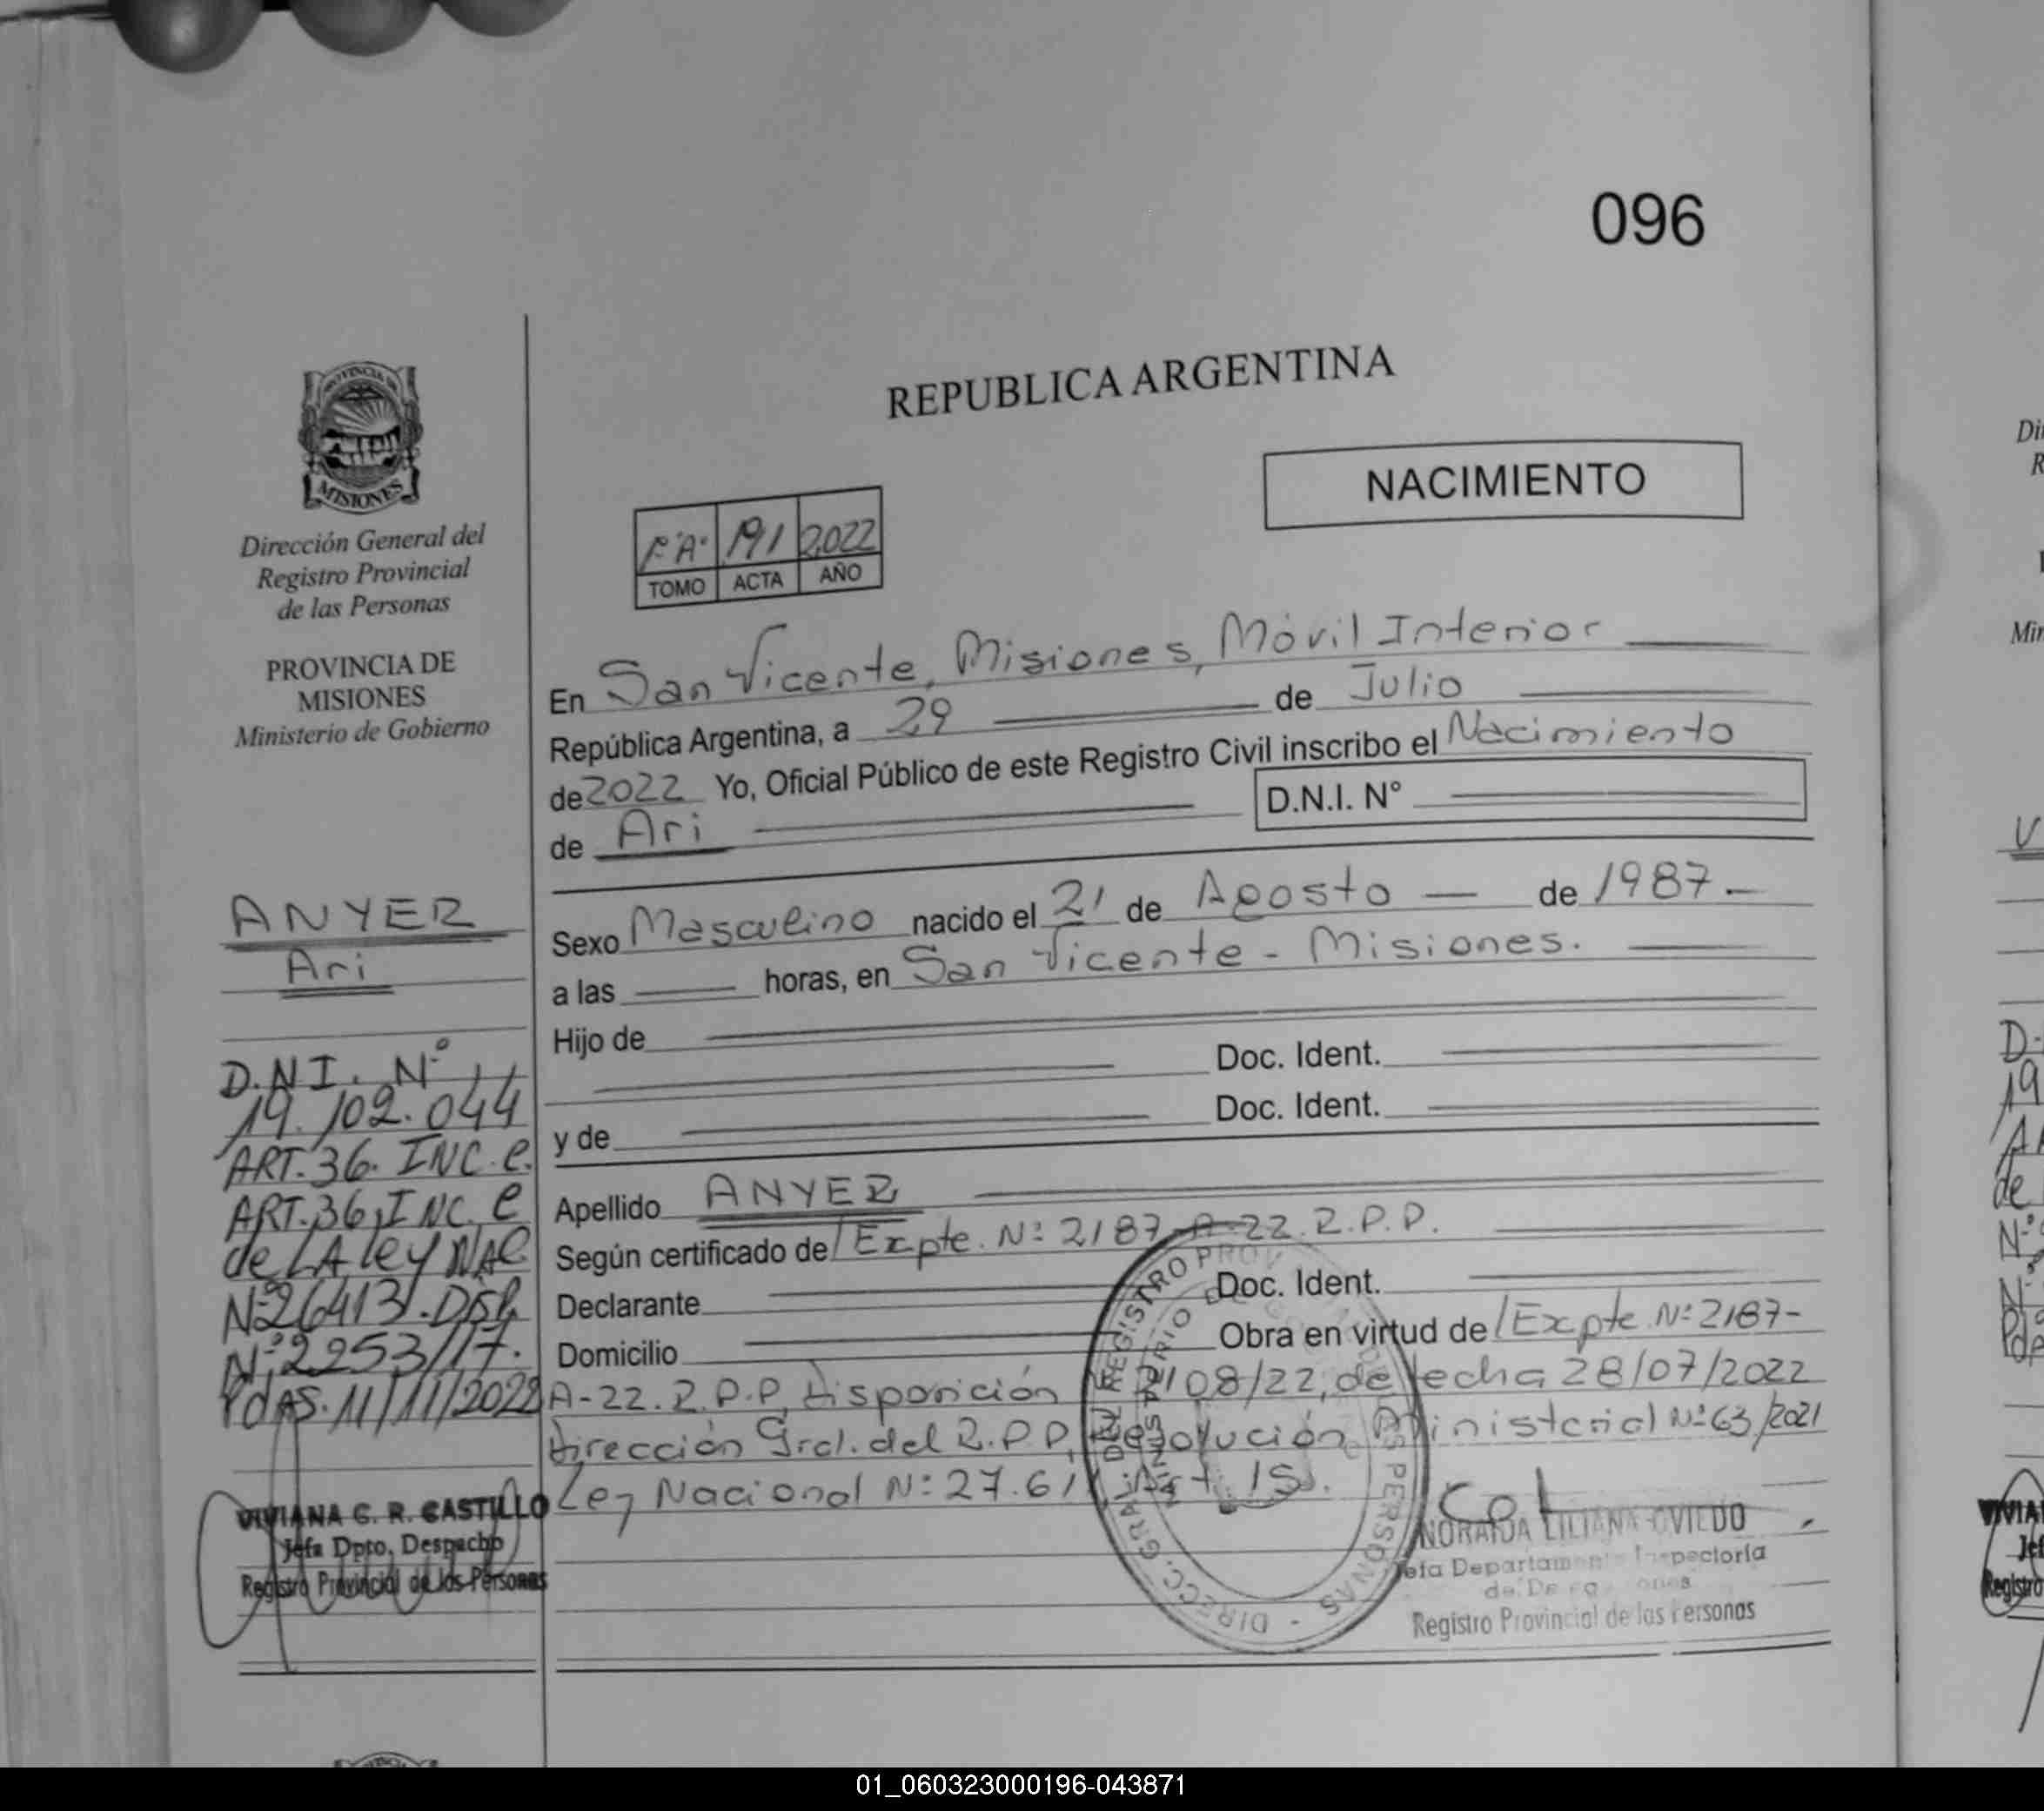 096
REPUBLICA ARGENTINA
NACIMIENTO
PROVINCIA DE
MISIONES
Dirección General del
Registro Provincial
de las Personas
PROVINCIA DE
MISIONES
Ministerio de Gobierno
"A" 191 2022
TOMO ACTA AÑO
En San Vicente, Misiones, Móvil Interior
República Argentina, a 29 de Julio
de 2022 Yo, Oficial Público de este Registro Civil inscribo el Nacimiento
de Ari D.N.I. N°
Sexo Masculino nacido el 21 de Agosto de 1987.-
a las horas, en San Vicente - Misiones.
Hijo de
Doc. Ident.
y de Doc. Ident.
Apellido ANYER
Según certificado de Expte. Nº 2187-A-22.R.P.P.
Declarante Doc. Ident.
Domicilio Obra en virtud de Expte Nº 2187-
A-22.R.P.P, Disposición 2108/22, de fecha 28/07/2022
Dirección Gral. del R.P.P, Resolución Ministerial Nº 63/2021
Ley Nacional Nº 27.611 Art. 15.
ANYER
Ari
D.N.I. Nº
19.102.044
ART. 36. INC. e.
ART. 36, INC. e
de LA ley NAC
Nº 26413. DISP.
Nº 2253/17.
PdAS. 11/11/2022
VIVIANA G. R. CASTILLO
Jefa Dpto. Despacho
Registro Provincial de las Personas
DIRECC. GRAL. DEL REGISTRO PROV. DE LAS PERSONAS
NORAIDA LILIANA OVIEDO
Jefa Departamento Inspectoría
de De
Registro Provincial de las Personas
Di
R
Min
V
D.
19
de
VIVIA
Jef
Registro
01_060323000196-043871